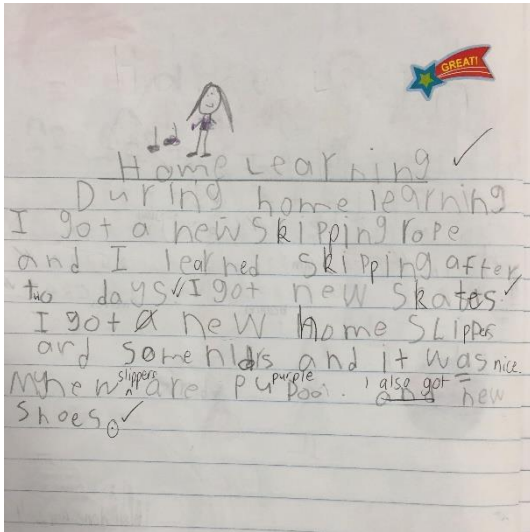 GREAT!
Home Learning
During home learning
I got a new skipping rope
and I learned skipping after
two days I got new skates.
I got a new home slippers
and some and it was nice.
My new slippers are purple I also got new
shoes.